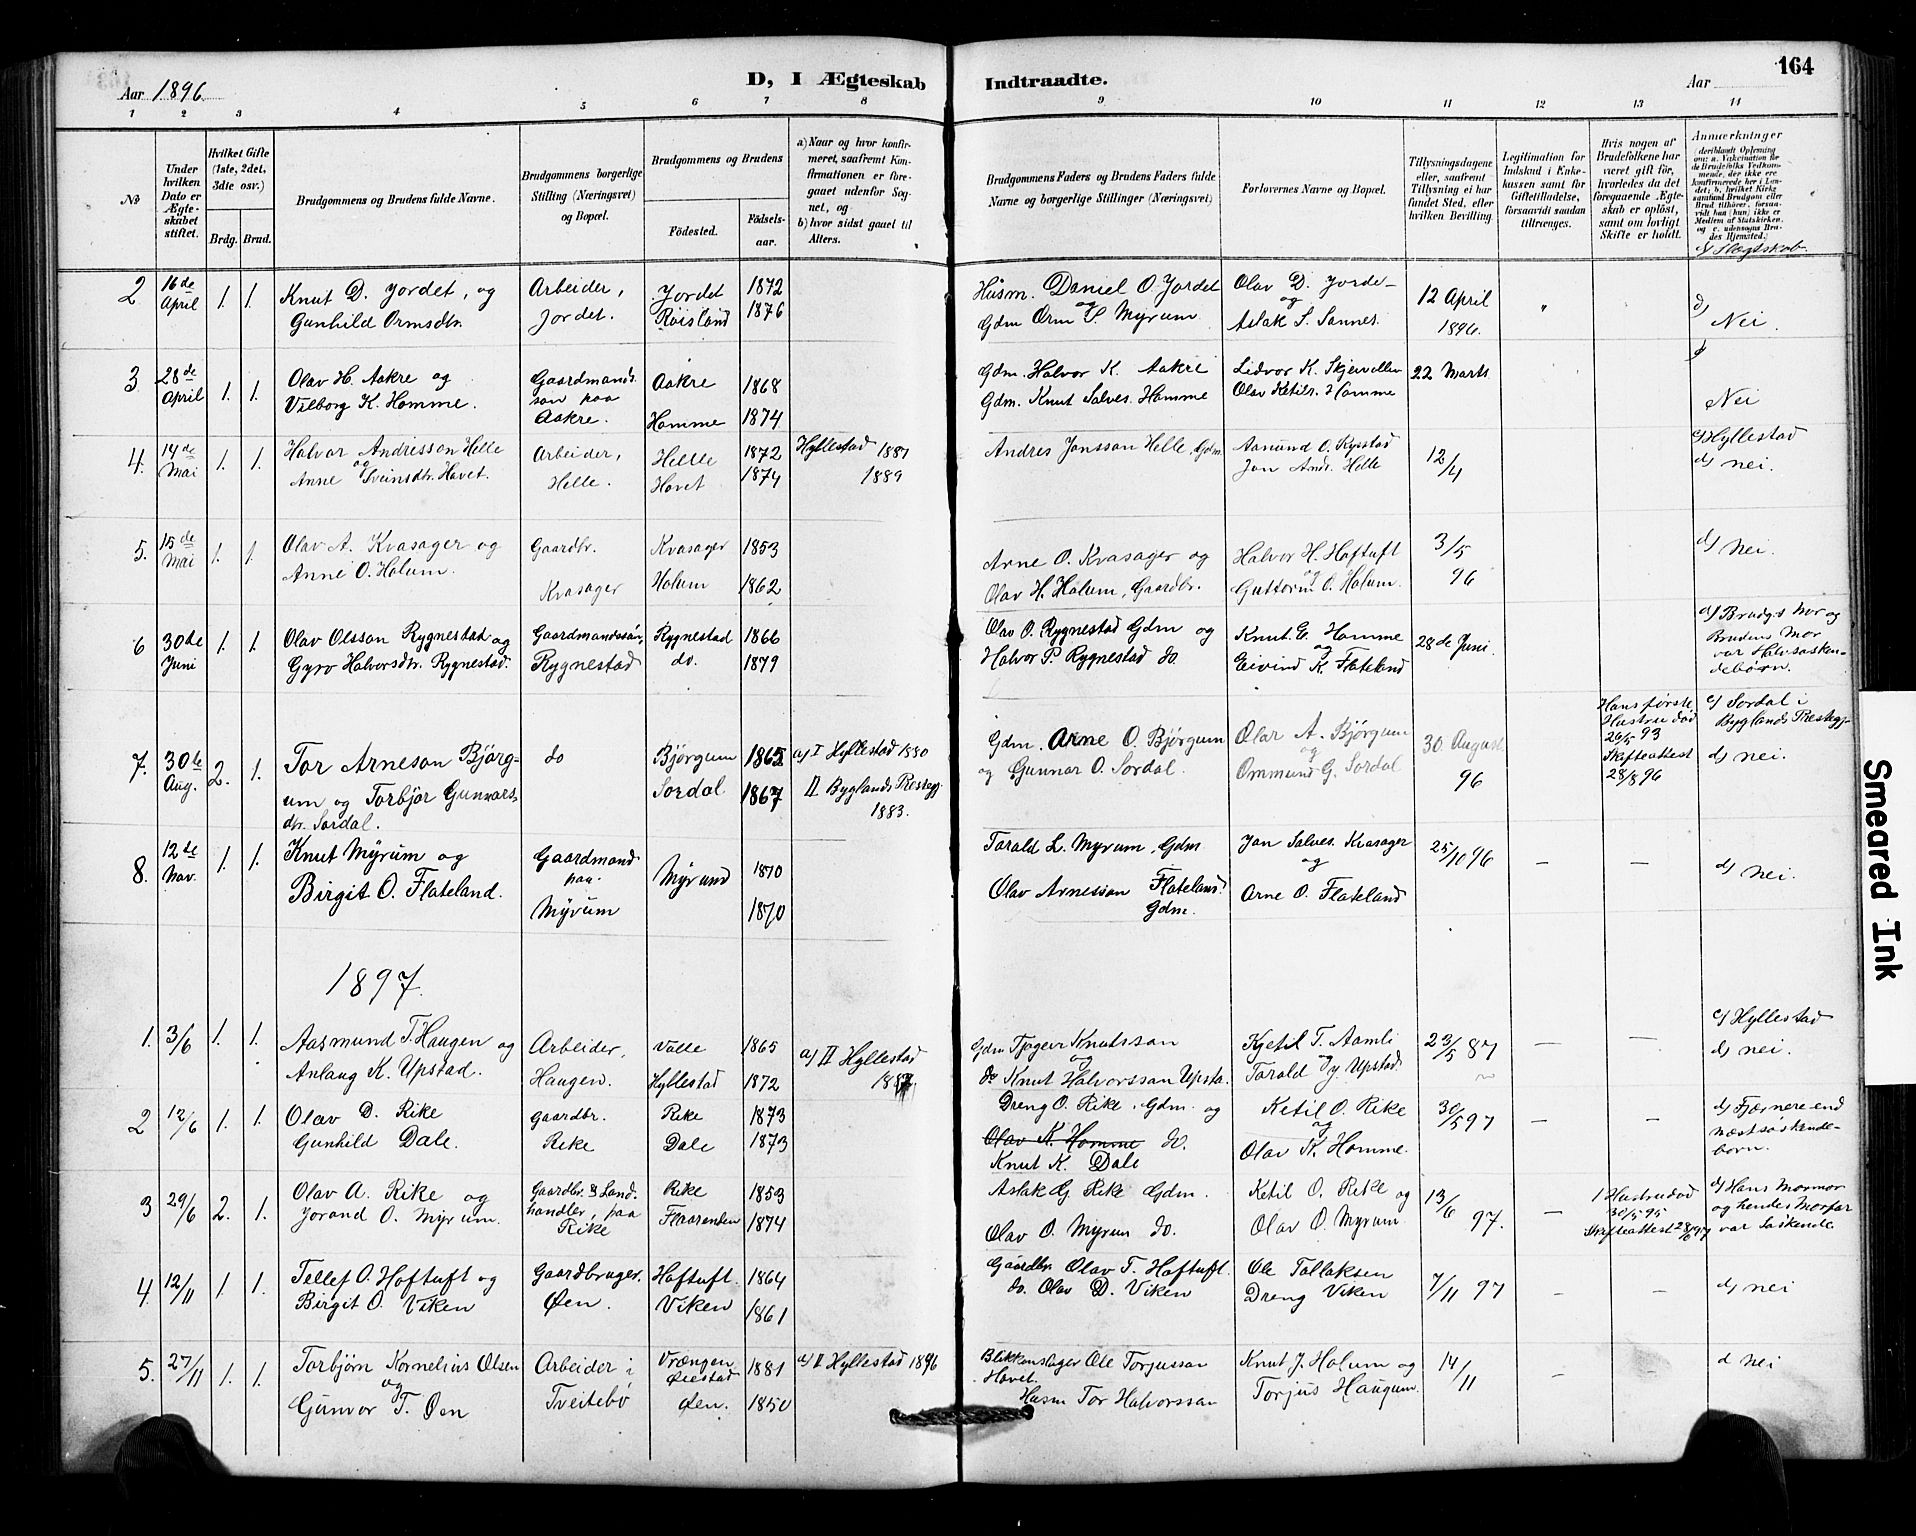 164
Aar 1896.
D, I Ægteskab Indtraadte.
Aar
1 2 3 4 5 6 7 8 9 10 11 12 13 14
No
Under hvilken Dato er Ægteskabet stiftet.
Hvilket Gifte (1ste, 2det, 3die osv.)
Brdg. Brud.
Brudgommens og Brudens fulde Navne.
Brudgommens borgerlige Stilling (Næringsvei) og Bopæl.
Brudgommens og Brudens
Födested.
Födselsaar.
a) Naar og hvor konfirmeret, saafremt Konfirmationen er foregaaet udenfor Sognet, og
b) hvor sidst gaaet til Alters.
Brudgommens Faders og Brudens Faders fulde Navne og borgerlige Stillinger (Næringsvei)
Forlovernes Navne og Bopæl.
Tillysningsdagene eller, saafremt Tillysning ei har fundet Sted, efter hvilken Bevilling.
Legitimation for Indskud i Enkekassen samt for Giftetilladelse, forsaavidt saadan tiltrænges.
Hvis nogen af Brudefolkene har været gift för, hvorledes da det foregaaende Ægteskab er oplöst, samt om lovligt Skifte er holdt.
Anmærkninger
d) Slægtskab.
2 16de April 1. 1. Knut D. Jordet, og Arbeider, Jordet 1872 Husm. Daniel O. Jordet Olav D. Jorde- 12 April " d)
Gunhild Ormsdtr. Jordet. Röisland 1876 og Gdm Orm S. Myrum og Aslak S. Sannes. 1896. Nei.
3 28de April 1. 1. Olav H. Aakre og Gaardmands- Aakre 1868 Gdm. Halvor K. Aakre Lidvor K. Skjevellen 22 Marts d
Vilborg K. Homme. son paa Aakre. Homme 1874 Gdm. Knut Salves. Homme Olav Ketilr. Homme Nei
4. 14de Mai 1. 1. Halvor Andrisson Helle Arbeider, Helle 1872 Hyllestad 1887 Andres Jonsson Helle, Gdm. Aanund O. Rysstad 12/4 c) Hyllestad
og Anne Sveinsdtr. Hovet. Helle. Hovet 1874 1889 Jon Ands. Helle d) nei.
5. 15de Mai 1. 1. Olav A. Kvasager og Gaardbr. Kvasager 1853 Arne O. Kvasager og Halvor H. Hoftuft 3/5 d) nei.
Anne O. Holum. Kvasager Holum 1862 Olav H. Holum, Gaardbr. og Guttorm O. Holum. 96
6 30de Juni 1. 1. Olav Olsson Rygnestad og Gaardmandssön, Rygnestad 1866 Olav O. Rygnestad Gdm og Knut E. Homme 28de Juni. d) Brudg's Mor og
Gyro Halvorsdtr. Rygnestad. Rygnestad do. 1879 Halvor P. Rygnestad do. og Eivind K. Flateland Brudens Mor
var Halvsöskendebörn.
7. 30te Aug. 2. 1. Tor Arneson Björg- do Björgum 1865 a) I Hyllestad 1880 Gdm. Arne O. Björgum Olav A. Björgum 30 August Hans förste Hustru död 26/5 93 c) Sordal i
um og Torbjor Gunnars- Sordal 1867 II Byglands Prestegj. og Gunnar O. Sordal. og Ommund G. Sordal 96 Skifteattest 28/8 96 Byglands Prestegj.
dtr. Sordal. 1883. d) nei.
8. 12de Nov. 1. 1. Knut Myrum og Gaardmand Myrum 1870 Tarald L. Myrum, Gdm Jon Salves. Kvasager 25/10 96 — —
Birgit O. Flateland. paa Myrum 1870 Olav Arnesson Flateland. Gdm. og Arne O. Flateland d) nei.
1897.
1. 3/6 1. 1. Aasmund T. Haugen og Arbeider, Valle 1865 a) II Hyllestad Gdm Tjøgeir Knutsson Kjetil T. Aamli 23/5 87 — — c) Hyllestad
Anlaug K. Upstad. Haugen. Hyllestad 1872 og do Knut Halvorssan Upsta. og Tarald y. Upstad d) nei.
2 12/6 1. 1. Olav D. Rike Gaardbr. Rike 1873 Dreng O. Rike, Gdm. og Ketil O. Rike 30/5 97 — — d) Fjærnere end
Gunhild Dale. Rike Dale 1873 Olav K. Homme do. og Olav K. Homme. næstsöskende-
Knut K. Dale born.
3 29/6 2. 1. Olav A. Rike og Gaardbr. & Land- Rike 1853 Aslak G. Rike Gdm. Ketil O. Rike og 13/6 — 1 Hustru död 30/5 95 d) Hans Mormor
Jorand O. Myrum. handler, paa Rike Flaarenden 1874 Olav O. Myrum do. Olav O. Myrum. 97. Skifteattest 28/6 97 og hendes Morfar
var Söskende.
4. 12/11 1. 1. Tellef O. Hoftuft og Gaardbruger. Hoftuft. 1864 Gaardbr. Olav T. Hoftuft. Ole Tollaksen 7/11 97 — — d) nei
Birgit O. Viken Øen. Viken 1861 do. Olav D. Viken Dreng Viken
5. 27/11 1. 1. Torbjørn Kornelius Olsen Arbeider i Vrængen Øiestad 1881 a) I Hyllestad 1896 Blikkenslager Ole Torjussan Knut J. Holum og 14/11 — — d nei
og Gunvor T. Øen Tveitebø Øen. 1850 Hovet. Husm Tor Halvorssan Torjus Haugum.
Smeared Ink